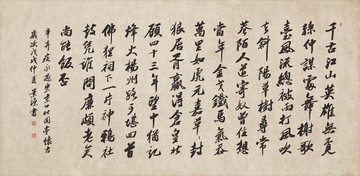 千古江山英雄無覓
孫仲謀處舞榭歌
臺風流總被雨打風吹
去斜陽草樹尋常
巷陌人道寄奴曾住想
當年金戈鐵馬氣吞
萬里如虎元嘉草草封
狼居胥贏得倉皇北
顧四十三年望中猶記
烽火揚州路可堪回首
佛狸祠下一片神鴉社
鼓憑誰問廉頗老矣
尚能飯否
辛弃疾永遇樂京口北固亭懷古
歲次戊戌仲夏書